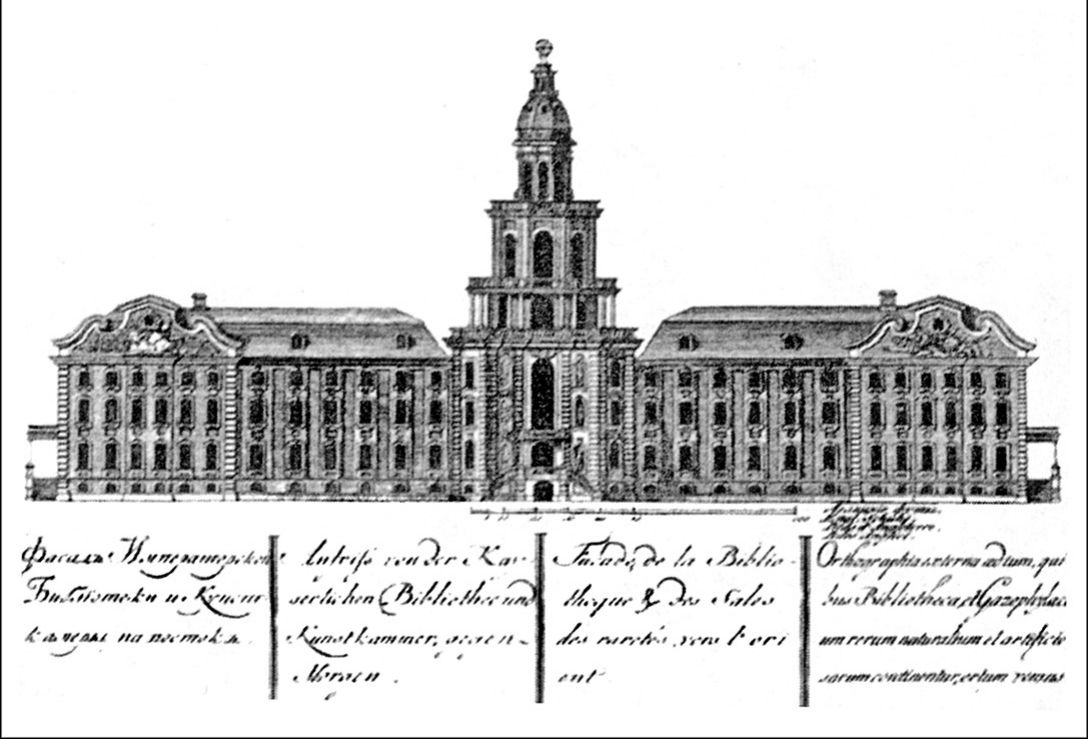 Фасадъ Императорской
Библiотеки и Кунст
камеры на востокъ.
Aufriss von der Kay-
serlichen Bibliothec und
Kunstkammer, gegen
Morgen.
Façade de la Biblio-
theque & des Sales
des raretés, vers l'ori
ent
Orthographia externa ædium, qui
bus Bibliotheca, et Gazophylaci
um rerum naturalium et artificio
sarum continentur, ortum versus